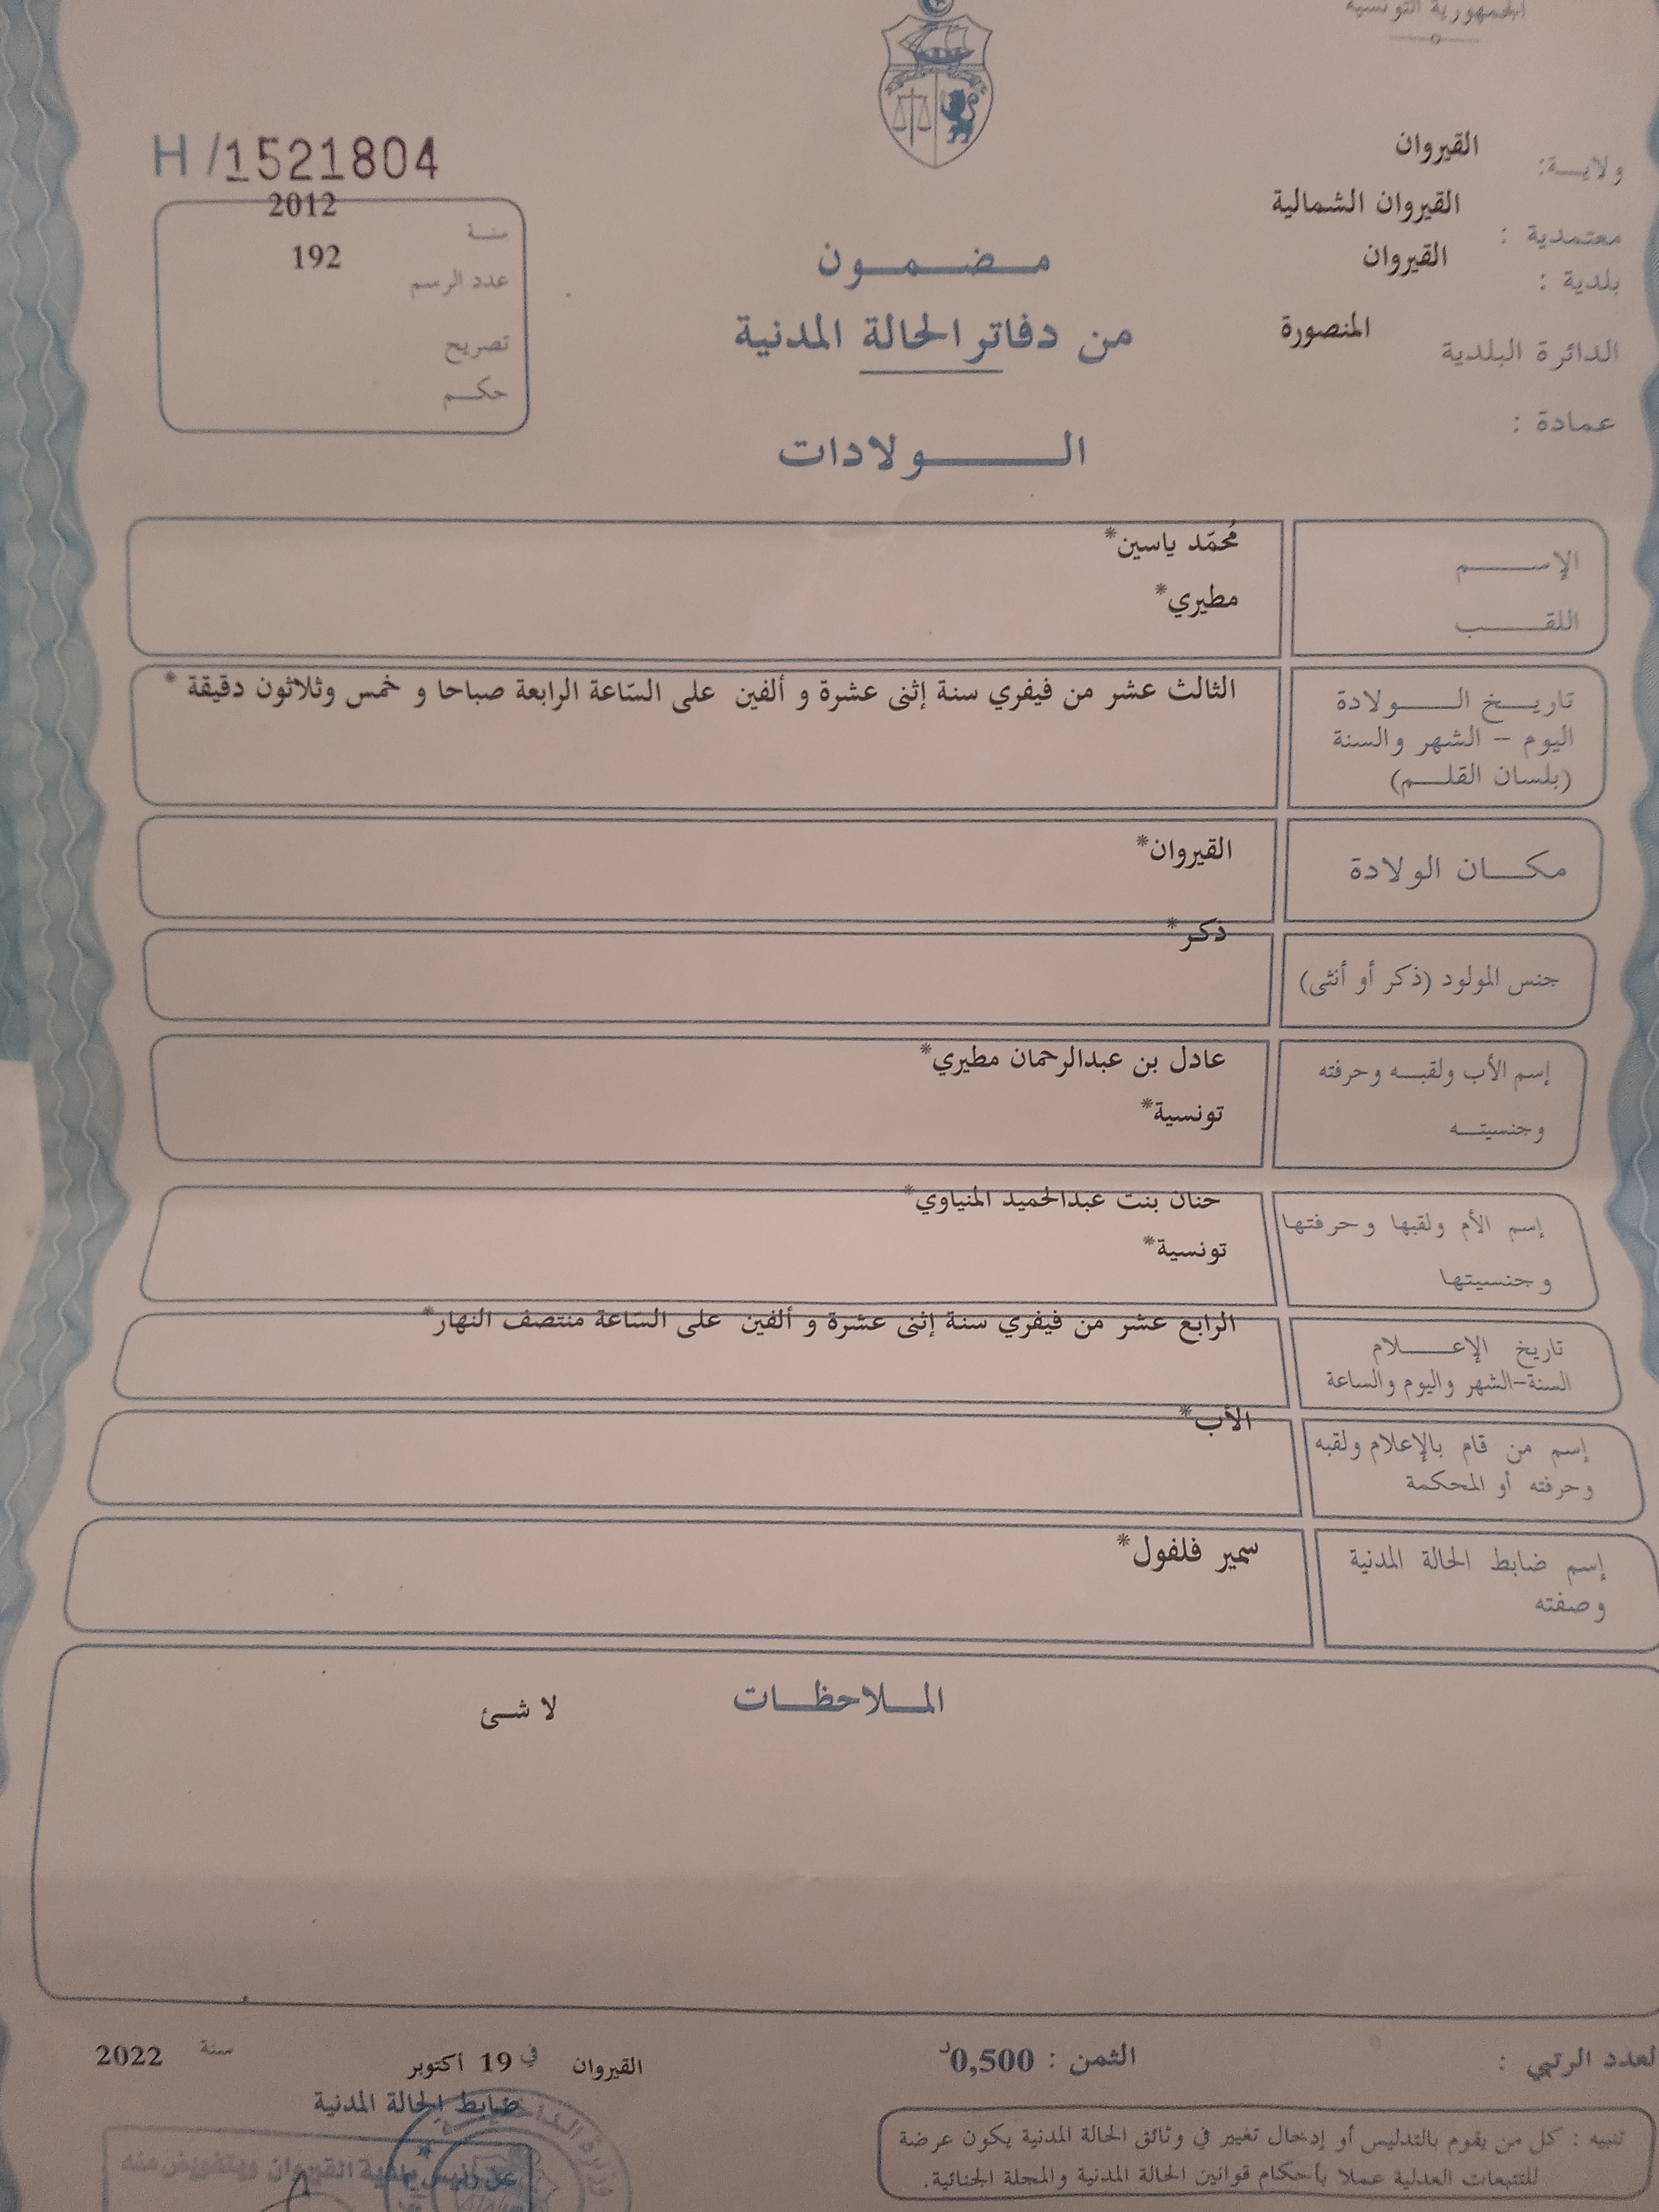 الجمهورية التونسية
ولاية: القيروان
معتمدية : القيروان الشمالية
بلدية : القيروان
الدائرة البلدية المنصورة
عمادة :
H /1521804
سنة 2012
عدد الرسم 192
تصريح
حكم
مضمون
من دفاتر الحالة المدنية
الولادات
الإسم مُحمّد ياسين*
اللقب مطيري*
تاريخ الولادة الثالث عشر من فيفري سنة إثنى عشرة و ألفين على السّاعة الرابعة صباحا و خمس وثلاثون دقيقة *
اليوم – الشهر والسنة
(بلسان القلم)
مكان الولادة القيروان*
جنس المولود (ذكر أو أنثى) ذكر*
إسم الأب ولقبه وحرفته عادل بن عبدالرحمان مطيري*
وجنسيته تونسية*
إسم الأم ولقبها وحرفتها حنان بنت عبدالحميد المنياوي*
وجنسيتها تونسية*
تاريخ الإعلام الرابع عشر من فيفري سنة إثنى عشرة و ألفين على السّاعة منتصف النهار*
السنة–الشهر واليوم والساعة
إسم من قام بالإعلام ولقبه الأب*
وحرفته أو المحكمة
إسم ضابط الحالة المدنية سمير فلفول*
وصفته
الملاحظات
لا شئ
لعدد الرتبي :
الثمن : 0,500د
القيروان في 19 أكتوبر سنة 2022
ضابط الحالة المدنية
وزارة الداخلية
عن رئيس بلدية القيروان وبتفويض منه
تنبيه : كل من يقوم بالتدليس أو إدخال تغيير في وثائق الحالة المدنية يكون عرضة
للتتبعات العدلية عملا بأحكام قوانين الحالة المدنية والمجلة الجنائية.